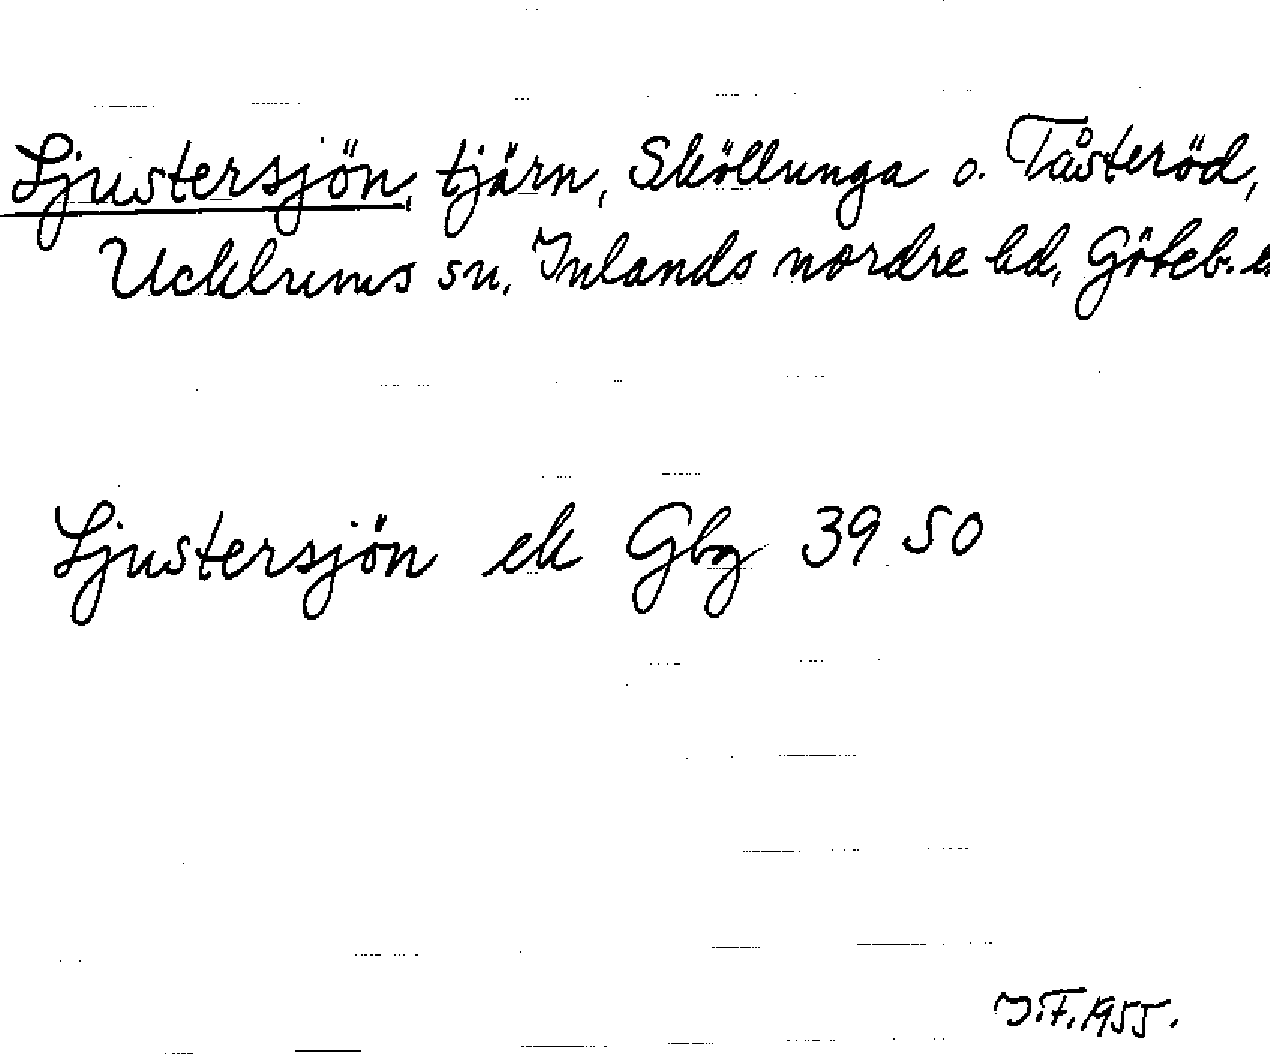 Ljustersjön, tjärn, Sköllunga o. Tåsteröd,
Ucklums sn, Inlands nordre hd, Göteb.
Ljustersjön ek Gbg 39 50
J.F. 1955.